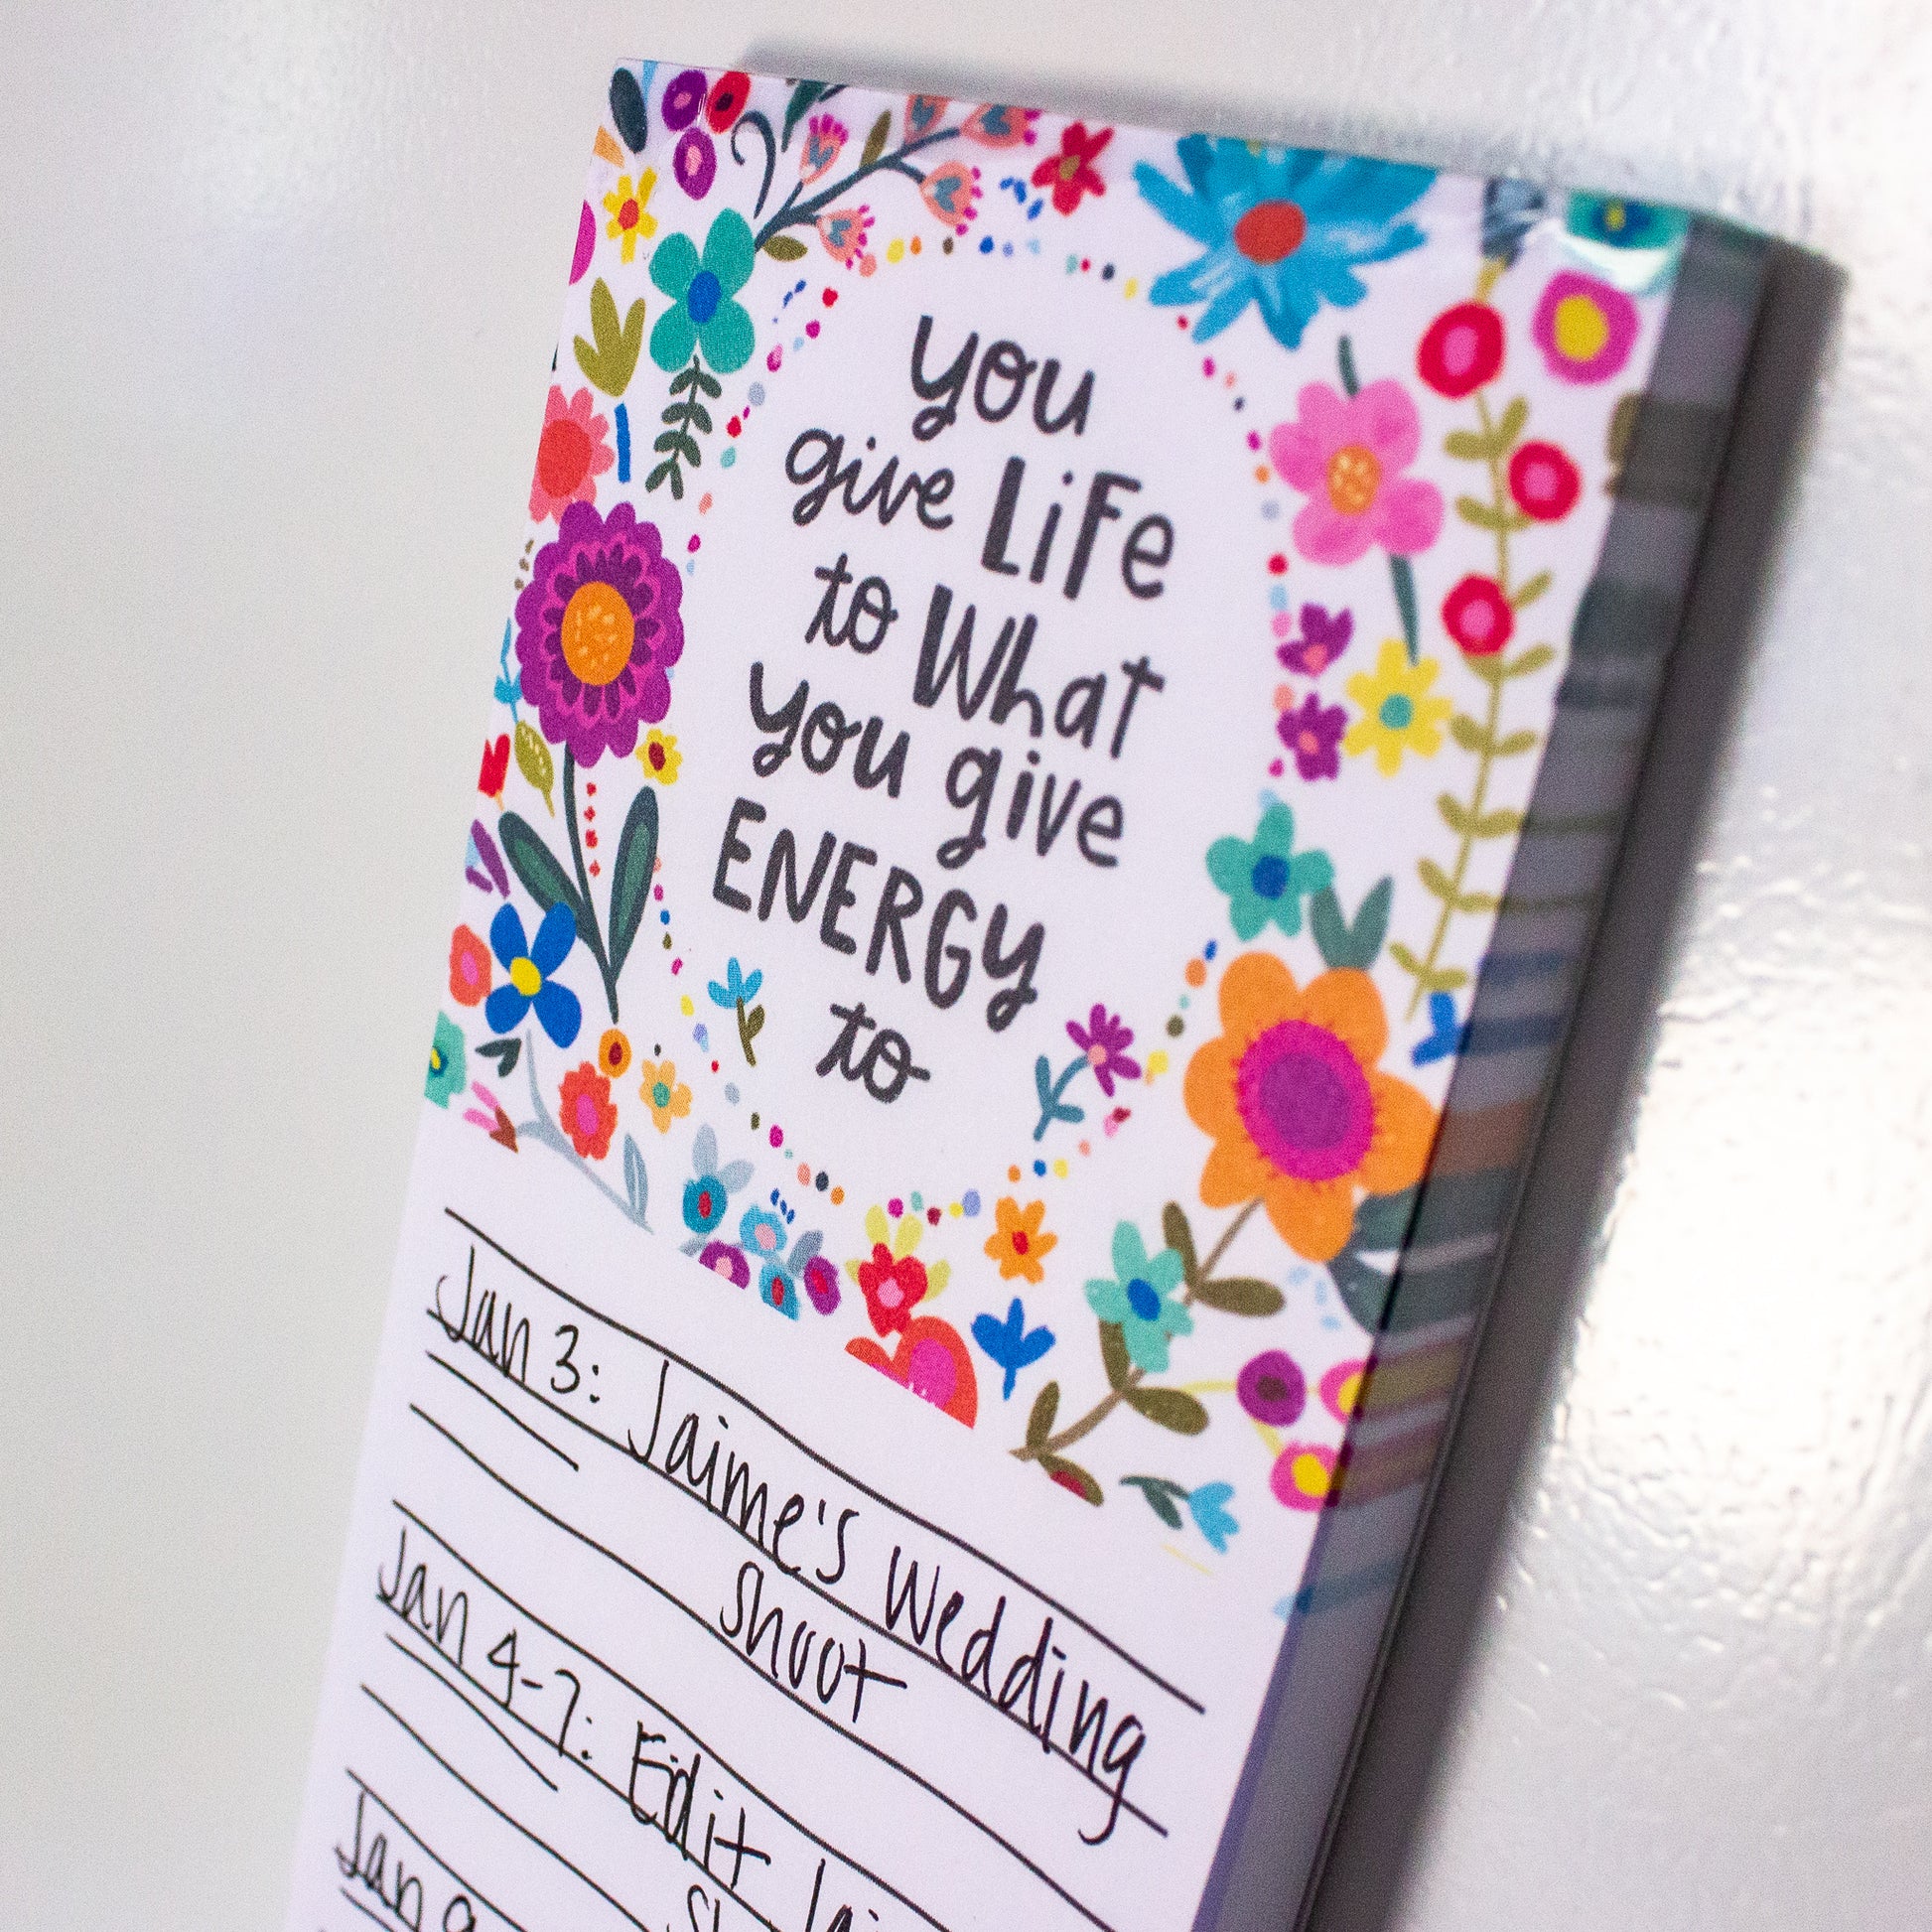 you
give Life
to What
you give
ENERGY
to
Jan 3: Jaime's Wedding
Shoot
Jan 4-7: Edit
Jan 9